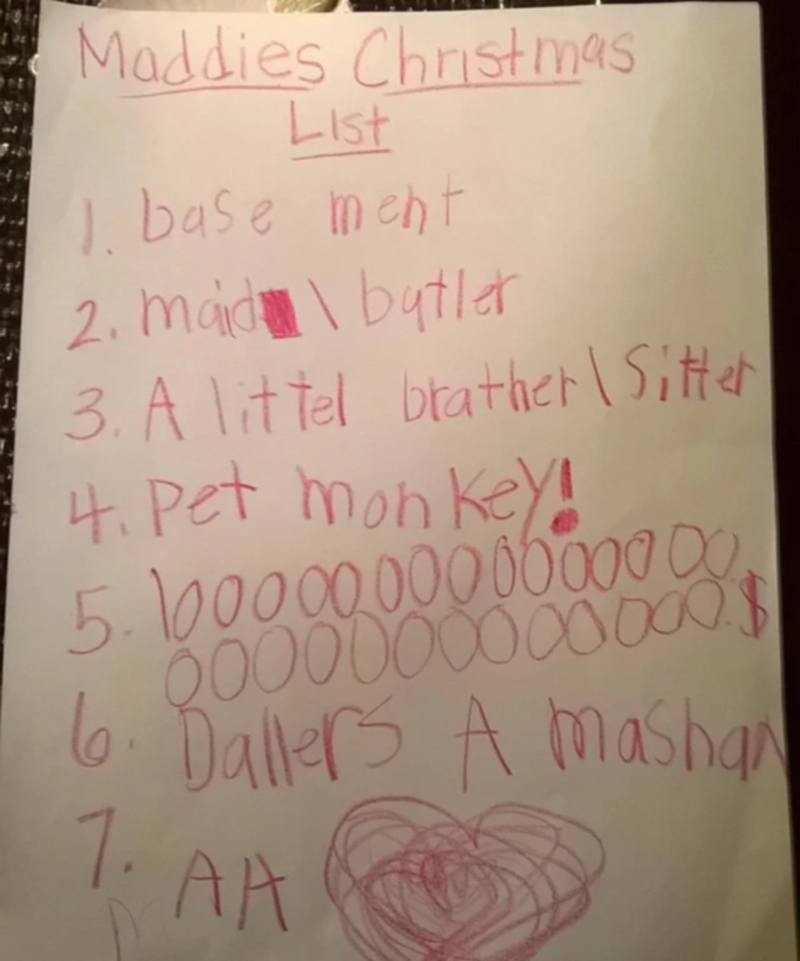 Maddies Christmas
List
1. base ment
2. maid \ butler
3. A littel brather \ Sitter
4. Pet monkey!
5. 1000000000000000
00000000000000.$
6. Dallers A mashan
7. AA